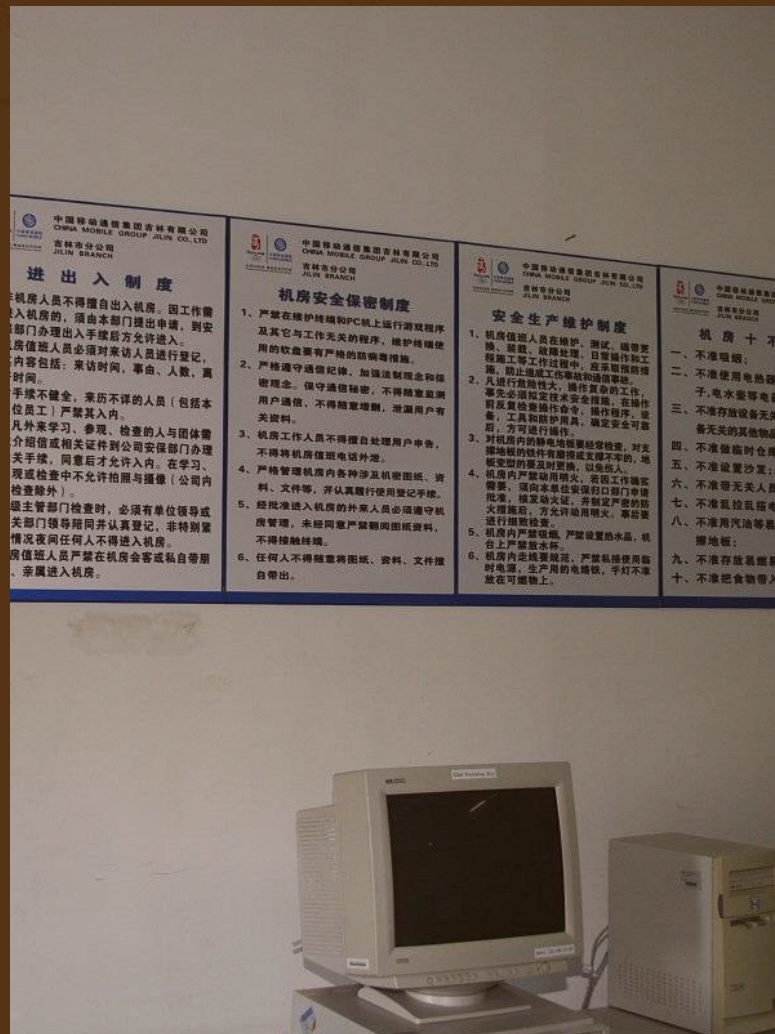 中国移动通信集团吉林有限公司
CHINA MOBILE GROUP JILIN CO.,LTD
吉林市分公司
JILIN BRANCH
进出入制度
机房人员不得擅自出入机房。因工作需
入机房的，须由本部门提出申请，到安
部门办理出入手续后方允许进入。
房值班人员必须对来访人员进行登记，
内容包括：来访时间，事由、人数，离
时间。
手续不健全，来历不详的人员（包括本
位员工）严禁其入内。
凡外来学习、参观、检查的人与团体需
介绍信或相关证件到公司安保部门办理
关手续，同意后才允许入内。在学习、
观或检查中不允许拍照与摄像（公司内
检查除外）。
级主管部门检查时，必须有单位领导或
关部门领导陪同并认真登记，非特别紧
情况夜间任何人不得进入机房。
房值班人员严禁在机房会客或私自带朋
、亲属进入机房。
中国移动通信集团吉林有限公司
CHINA MOBILE GROUP JILIN CO.,LTD
吉林市分公司
JILIN BRANCH
机房安全保密制度
1、严禁在维护终端和PC机上运行游戏程序
及其它与工作无关的程序，维护终端使
用的软盘要有严格的防病毒措施。
2、严格遵守通信纪律，加强法制观念和保
密观念。保守通信秘密，不得随意监测
用户通信，不得随意增删，泄漏用户有
关资料。
3、机房工作人员不得擅自处理用户申告，
不得将机房值班电话外泄。
4、严格管理机房内各种涉及机密图纸、资
料、文件等，并认真履行使用登记手续。
5、经批准进入机房的外来人员必须遵守机
房管理，未经同意严禁翻阅图纸资料，
不得接触终端。
6、任何人不得随意将图纸、资料、文件擅
自带出。
中国移动通信集团吉林有限公司
CHINA MOBILE GROUP JILIN CO.,LTD
吉林市分公司
JILIN BRANCH
安全生产维护制度
1、机房值班人员在维护、测试，磁带更
换、装载、故障处理、日常操作和工
程施工等工作过程中，应采取预防措
施，防止造成工作事故和通信事故。
2、凡进行危险性大，操作复杂的工作，
事先必须拟定技术安全措施，在操作
前反复检查操作命令，操作程序，设
备，工具和防护用具，确定安全可靠
后，方可进行操作。
3、对机房内的静电地板要经常检查，对支
撑地板的铁件有磨损或支撑不牢的，地
板变型的要及时更换，以免伤人。
4、机房内严禁动用明火，若因工作确实
需要，须向本单位安保归口部门申请
批准，核发动火证，并制定严密的防
火措施后，方允许动用明火，事后要
进行细致检查。
5、机房内严禁吸烟，严禁设置热水品，机
台上严禁放水杯。
6、机房内走线要规范，严禁私接使用临
时电源，生产用的电烙铁，手灯不准
放在可燃物上。
中国移动通信集团
CHINA MOBILE GROUP
吉林市分公司
JILIN BRANCH
机房十不
一、不准吸烟；
二、不准使用电热器
子,电水壶等电器
三、不准存放设备无关
备无关的其他物品
四、不准做临时仓库
五、不准设置沙发；
六、不准带无关人员
七、不准乱拉乱搭电
八、不准用汽油等易
擦地板；
九、不准存放易燃易
十、不准把食物带入